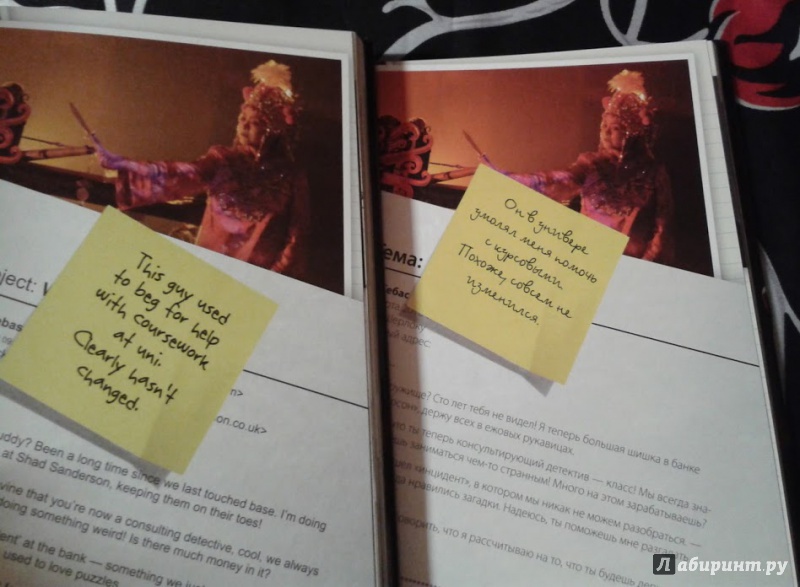 This guy used
to beg for help
with coursework
at uni.
Clearly hasn't
changed.
on.co.uk>
uddy? Been a long time since we last touched base. I'm doing
at Shad Sanderson, keeping them on their toes!
vine that you're now a consulting detective, cool, we always
doing something weird! Is there much money in it?
at the bank — something we
used to love puzzles.
Он в универе
умолял меня помочь
с курсовыми.
Похоже, совсем не
изменился.
Тема:
адрес
дружище? Сто лет тебя не видел! Я теперь большая шишка в банке
держу всех в ежовых рукавицах.
что ты теперь консультирующий детектив — класс! Мы всегда зна-
заниматься чем-то странным! Много на этом зарабатываешь?
«инцидент», в котором мы никак не можем разобраться. —
нравились загадки. Надеюсь, ты поможешь мне разгадать
говорить, что я рассчитываю на то, что ты будешь
Лабиринт.ру